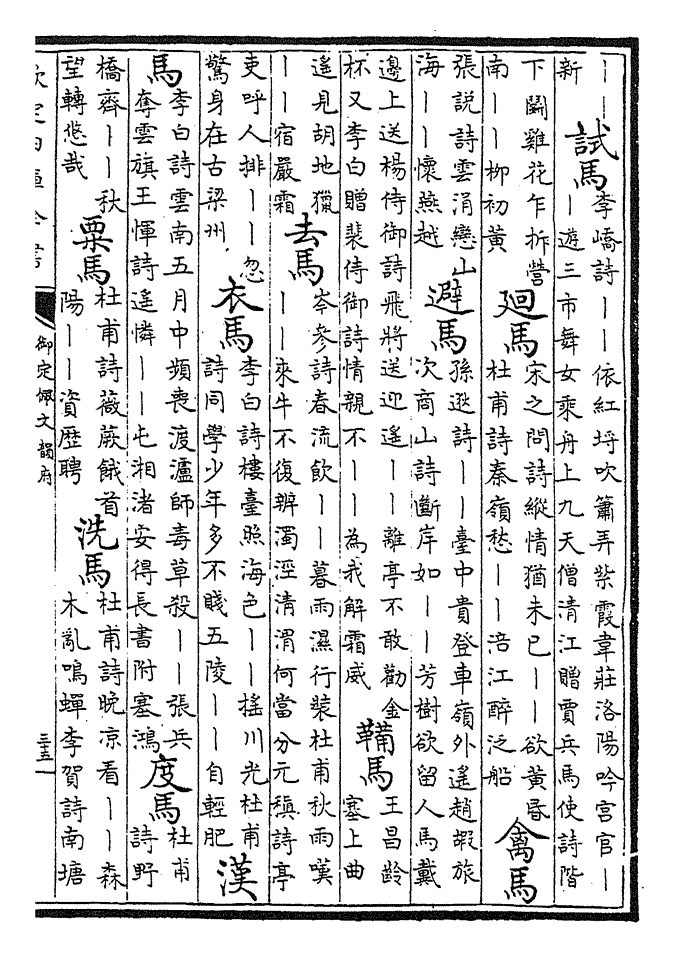 ｜｜
新
試馬
李嶠詩｜｜依紅埒吹簫弄紫霞韋莊洛陽吟宮官｜
｜遊三市舞女乘舟上九天僧清江贈賈兵馬使詩階
下鬭雞花乍拆營
南｜｜柳初黃
廻馬
宋之問詩縱情猶未已｜｜欲黃昏
杜甫詩秦嶺愁｜｜涪江醉泛船
禽馬
張説詩雲涓戀山
海｜｜懷燕越
避馬
孫逖詩｜｜臺中貴登車嶺外遙趙嘏旅
次商山詩斷岸如｜｜芳樹欲留人馬戴
邊上送楊侍御詩飛將送迎遙｜｜離亭不敢勸金
杯又李白贈裴侍御詩情親不｜｜為我解霜威
鞴馬
王昌齡
塞上曲
遙見胡地獵
｜｜宿嚴霜
去馬
岑參詩春流飲｜｜暮雨濕行裝杜甫秋雨嘆
｜｜來牛不復辨濁涇清渭何當分元稹詩亭
吏呼人排｜｜｜忽
驚身在古梁州
衣馬
李白詩樓臺照海色｜｜搖川光杜甫
詩同學少年多不賤五陵｜｜自輕肥
漢
馬
李白詩雲南五月中頻喪渡瀘師毒草殺｜｜張兵
奪雲旗王惲詩遙憐｜｜屯湘渚安得長書附塞鴻
度馬
杜甫
詩野
橋齊｜｜秋
望轉悠哉
粟馬
杜甫詩薇蕨餓首
陽｜｜資歷聘
洗馬
杜甫詩晚凉看｜｜森
木亂鳴蟬李賀詩南塘
欽定四庫全書
御定佩文韻府
三五